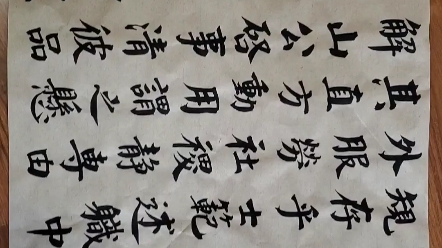 規存乎士範述職中
外服勞社稷靜專由
其直方動用謂之懸
解山公啓事清彼品